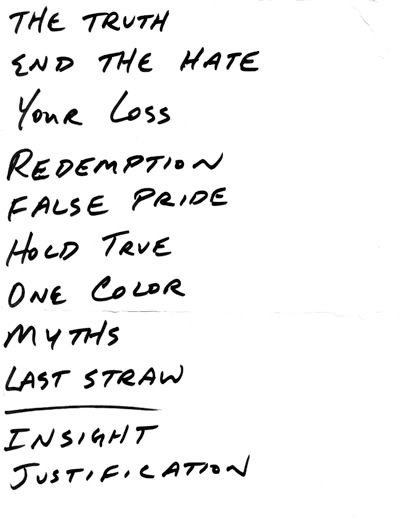 THE TRUTH
END THE HATE
YOUR LOSS
REDEMPTION
FALSE PRIDE
HOLD TRUE
ONE COLOR
MYTHS
LAST STRAW
INSIGHT
JUSTIFICATION